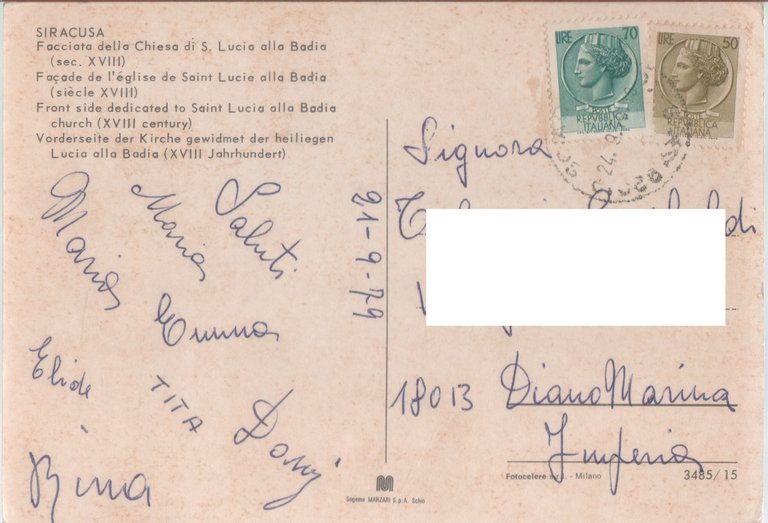 SIRACUSA
Facciata della Chiesa di S. Lucia alla Badia
(sec. XVIII)
Façade de l'église de Saint Lucie alla Badia
(siècle XVIII)
Front side dedicated to Saint Lucia alla Badia
church (XVIII century)
Vorderseite der Kirche gewidmet der heiliegen
Lucia alla Badia (XVIII Jahrhundert)
Saluti
Maria
Maria
Emma
Elide
TITA
Rina
21-9-79
LIRE 70
POSTE
REPVBBLICA
ITALIANA
LIRE 50
POSTE
REPVBBLICA
ITALIANA
24.9.
Signora
18013 Diano Marina
Imperia
Sagema MANZARI S.p.A. Schio
Fotocelere s.r.l. - Milano
3485/15